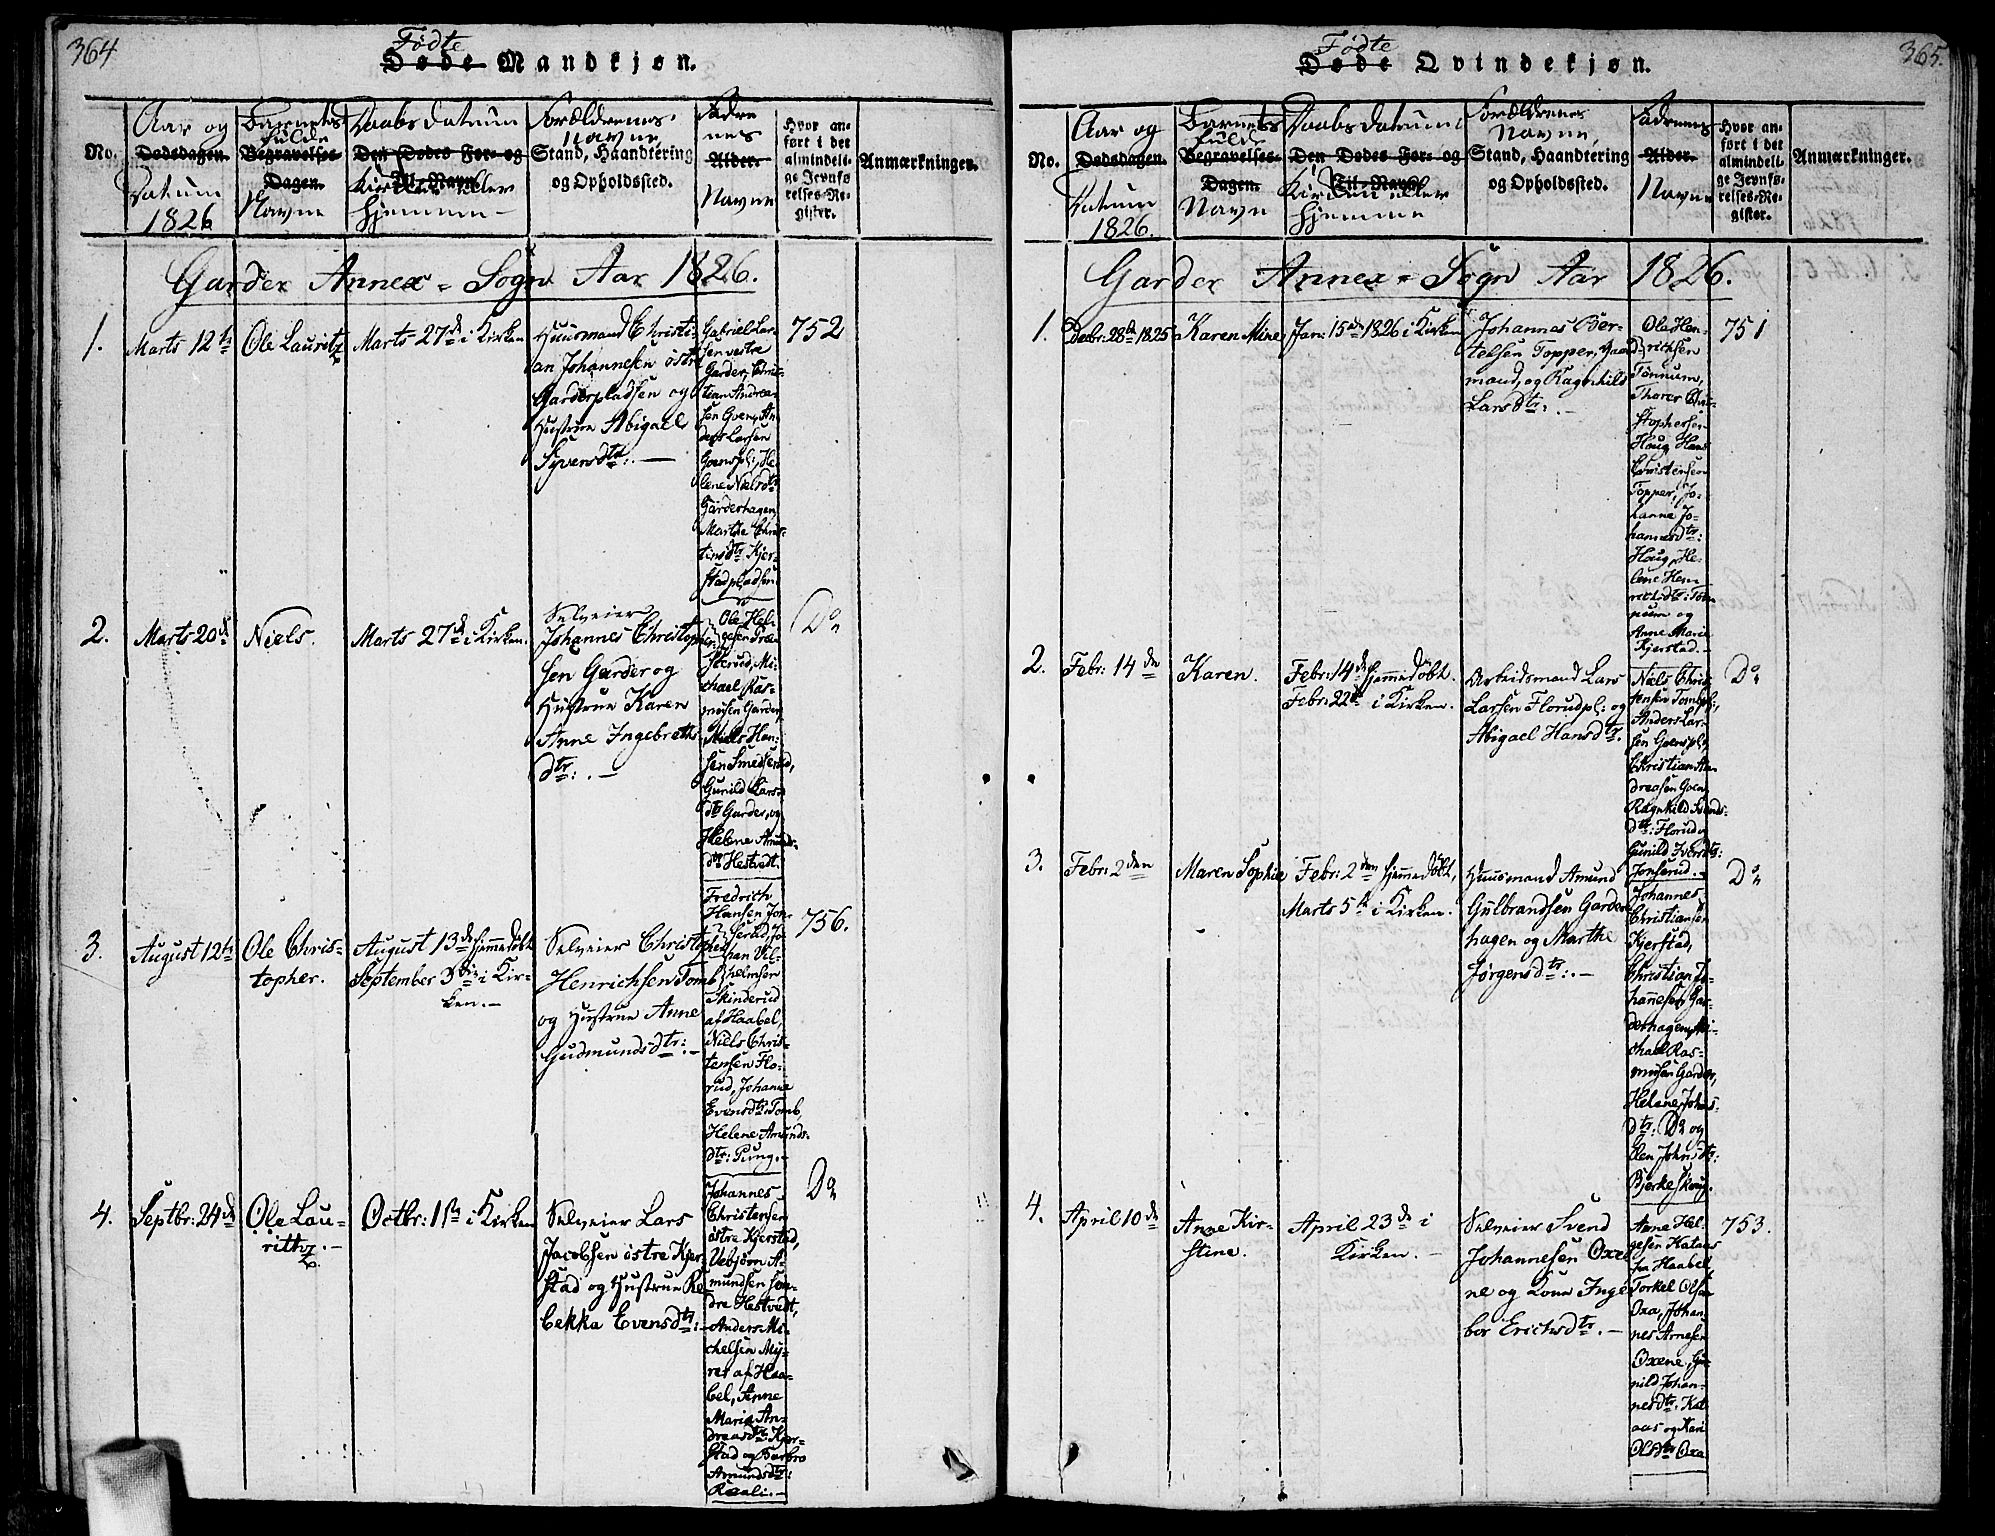 364
Fødte
Døde Mandkjøn.
No.
Aar og
Dødsdagen.
Datum
1826
Barnets
fulde
Begravelses-
Dagen.
Navne
Daabs Datum
Den Dødes For- og
Til-Navn
Kirken eller
hjemme-
Forældrenes
Navne
Stand, Haandtering
og Opholdssted.
Fadre
nes
Alder.
Navne
Hvor an-
ført i det
almindeli-
ge Jevnfø-
relses-Re-
gister.
Anmærkninger.
Garder Annex-Sogn Aar 1826.
1.
Marts 12te
Ole Lauritz
Marts 27de i Kirken
Huusmand Christi-
an Johannesen østre
Garderpladsen og
Hustrue Abigael
Syversdtr:.-
Gabriel Lar-
sen vestre
Garder, Chris-
tian Andrea-
sen Goen, An-
ders Larsen
Goenspl:, He-
lene Nielsdtr
Garderhagen,
Marthe Chris-
tensdtr Kjer-
stadpladsen
752
2.
Marts 20de
Niels.
Marts 27de i Kirken.
Selveier
Johannes Christopher-
sen Garder og
Hustrue Karen
Anne Ingebreths-
dtr:.-
Ole Hel-
gesen
Mi-
chael Ras-
musen Garder,
Niels Han-
sen Smedserud,
Gunild Lars-
dtr Garder, og
Helene Amunds-
dtr Hestvedt.
Do
3.
August 12te
Ole Chris-
topher.
August 13de hjemmedøbt
September 3die i Kir-
ken.-
Selveier Christopher
Henrichsen Tomb
og Hustrue Anne
Gudmundsdtr:.-
Fredrich
Hansen Jon-
serud, Jo-
han Vil-
helmsen
Skinderud
af Haabel,
Niels Chris-
tensen Flo-
rud, Johanne
Evensdtr: Tomb,
Helene Amunds-
dtr: Pung.-
756.
4.
Septbr: 24de
Ole Lau-
rittz.-
Octbr: 1ste i Kirken
Selveier Lars
Jacobsen østre Kjer-
stad og Hustrue Re-
bekka Evensdtr:.-
Johannes
Christensen
østre Kjerstad,
Vebjørn A-
mundsen søn-
dre Hestvedt,
Anders Mi-
chelsen My-
rer af Haa-
bel, Anne
Maria An-
dreasdtr: Kjer-
stad og Barbro
Amundsdtr:
Raali.-
Do
365.
Fødte
Døde Qvindekjøn.
No.
Aar og
Dødsdagen.
Datum
1826.
Barnets
fulde
Begravelses-
Dagen.
Navn
Daabs Datum i
Den Dødes For- og
Til-Navn
Kirken eller
hjemme
Forældrenes
Navne,
Stand, Haandtering
og Opholdssted.
Fadrenes
Alder.
Navne
Hvor an-
ført i det
almindeli-
ge Jevnfø-
relses-Re-
gister.
Anmærkninger.
Garder Annex-Sogn Aar 1826.
1.
Decbr: 28de 1825
Karen Mine
Jan: 15de 1826 i Kirken
Johannes Ber-
telsen Topper, Gaard-
mand, og Ragnhild
Larsdtr:.-
Ole Hen-
richsen
Tønnum,
Thorer Chri-
stophersen
Haug, Hans
Christensen
Topper, Jo-
hanne Jo-
hannesdtr:
Haug, He-
lene Hen-
richsdtr: Tøn-
num og
Anne Marie
Kjerstad.-
751
2.
Febr: 14de
Karen.
Febr: 14de hjemmedøbt.
Febr: 22de i Kirken.
Arbeidsmand Lars
Larsen Florudpl: og
Abigael Hansdtr.
Niels Chris-
tensen Tombpl:,
Anders Lar-
sen Goenspl:,
Christian An-
dreasen Goen,
Ragnhild Svends-
dtr: Florud og
Gunild Iversdtr:
Jonserud.-
Do
3.
Febr: 2den
Maren Sophie
Febr: 2den hjemmedøbt,
Marts 5te i Kirken.
Huusmand Amund
Gulbrandsen Garder-
hagen og Marthe
Jørgensdtr:.-
Johannes
Christiansen
Kjerstad,
Christian Jo-
hannesen Gar-
derhagen, Mi-
chael Ras-
musen Garder,
Helene Johns-
dtr: Do og
Elen Johnsdtr:
Bjerkeskoug.
Do
4.
April 10de
Anne Kir-
stine.
April 23de i
Kirken.-
Selveier Svend
Johannesen Oxe-
ne og Kone Inge-
bor Erichsdtr.-
Arne Hel-
gesen Kataas
fra Haabel,
Torkel Olsen
Oxa, Johan-
nes Arnesen
Oxene, Gu-
nild Johan-
nesdtr: Kat-
aas og Kari
Olsdtr Oxa
753.